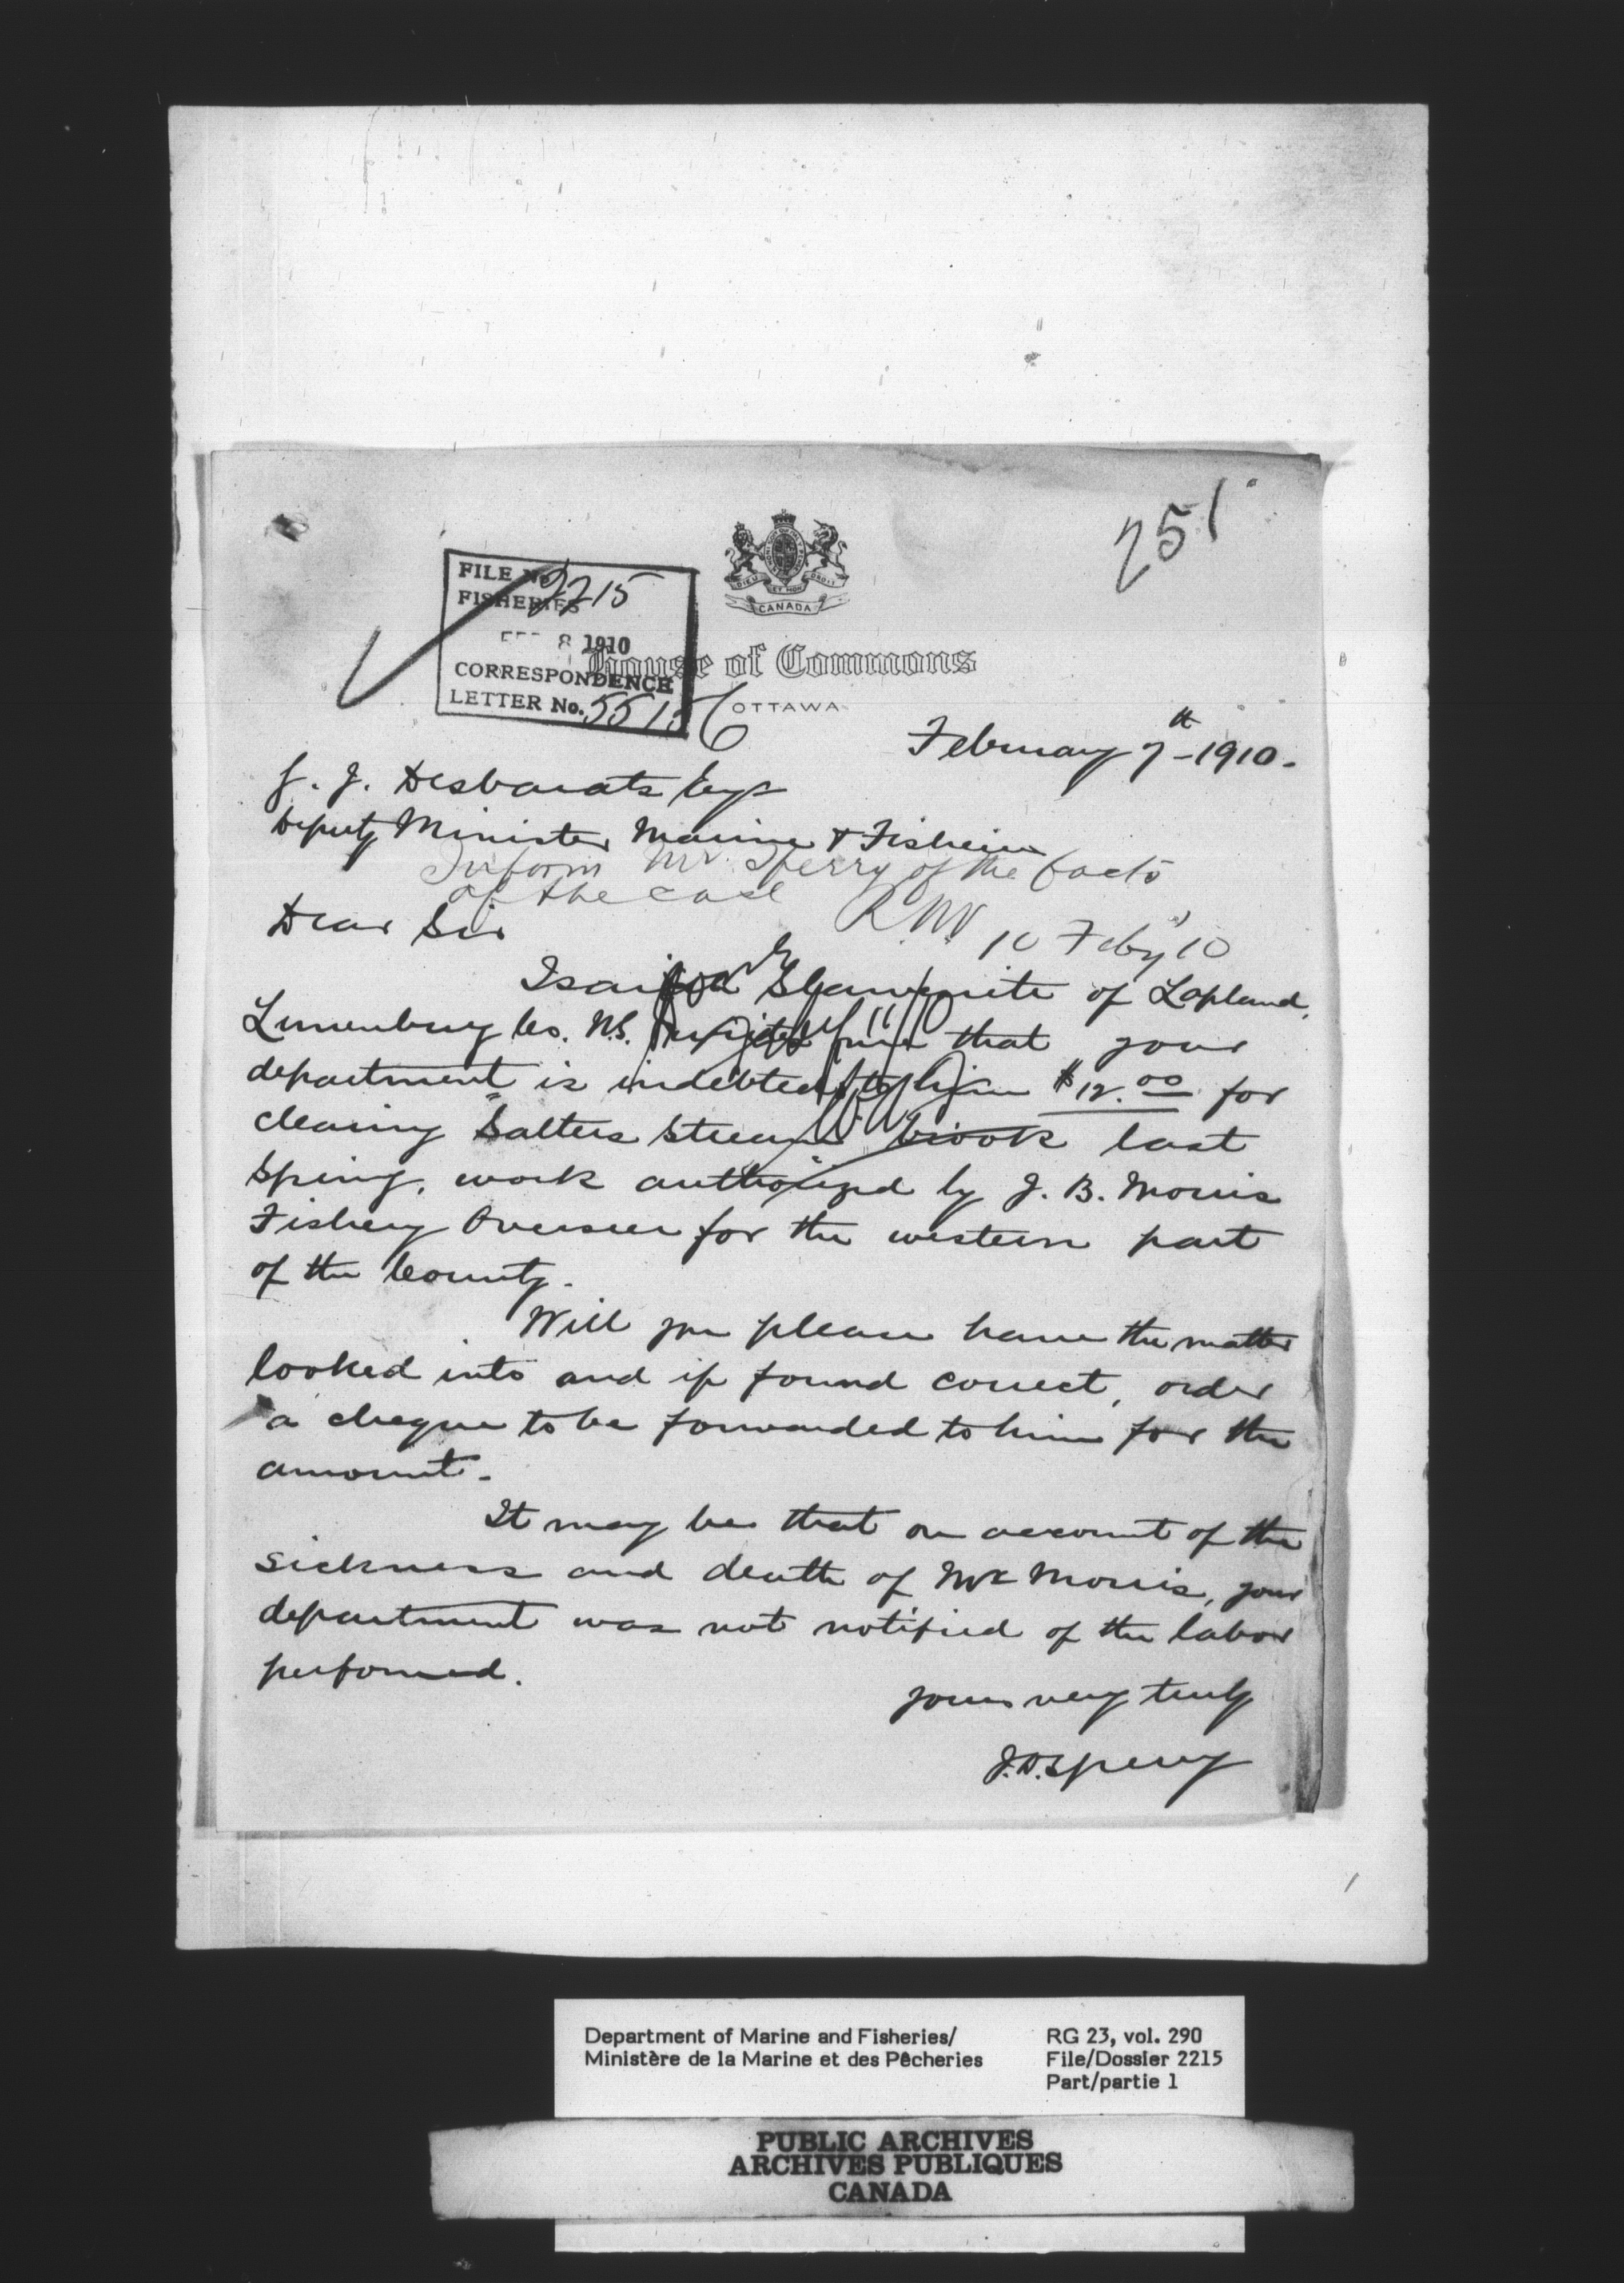 251
FILE No. 2215
FISHERIES
8 1910
CORRESPONDENCE
LETTER No. 55156
DIEU ET MON DROIT
CANADA
House of Commons
OTTAWA
February 7th - 1910.
G. J. Desbarats Esqr
Deputy Minister Marine & Fisheries
Inform Mr. Sperry of the facts
of the case
R.N.V. 10 Feby '10
Dear Sir
of Lapland,
Lunenburg Co. N.S. me that your
department is indebted to him $12.00 for
clearing "Salters Stream" brook last
Spring, work authorized by J. B. Morris
Fishery Overseer for the western part
of the County.
Will you please have the matter
looked into and if found correct, order
a cheque to be forwarded to him for the
amount.
It may be that on account of the
sickness and death of Mr Morris, your
department was not notified of the labor
performed.
Yours very truly
J.D. Sperry
Department of Marine and Fisheries/
Ministère de la Marine et des Pêcheries
RG 23, vol. 290
File/Dossier 2215
Part/partie 1
PUBLIC ARCHIVES
ARCHIVES PUBLIQUES
CANADA